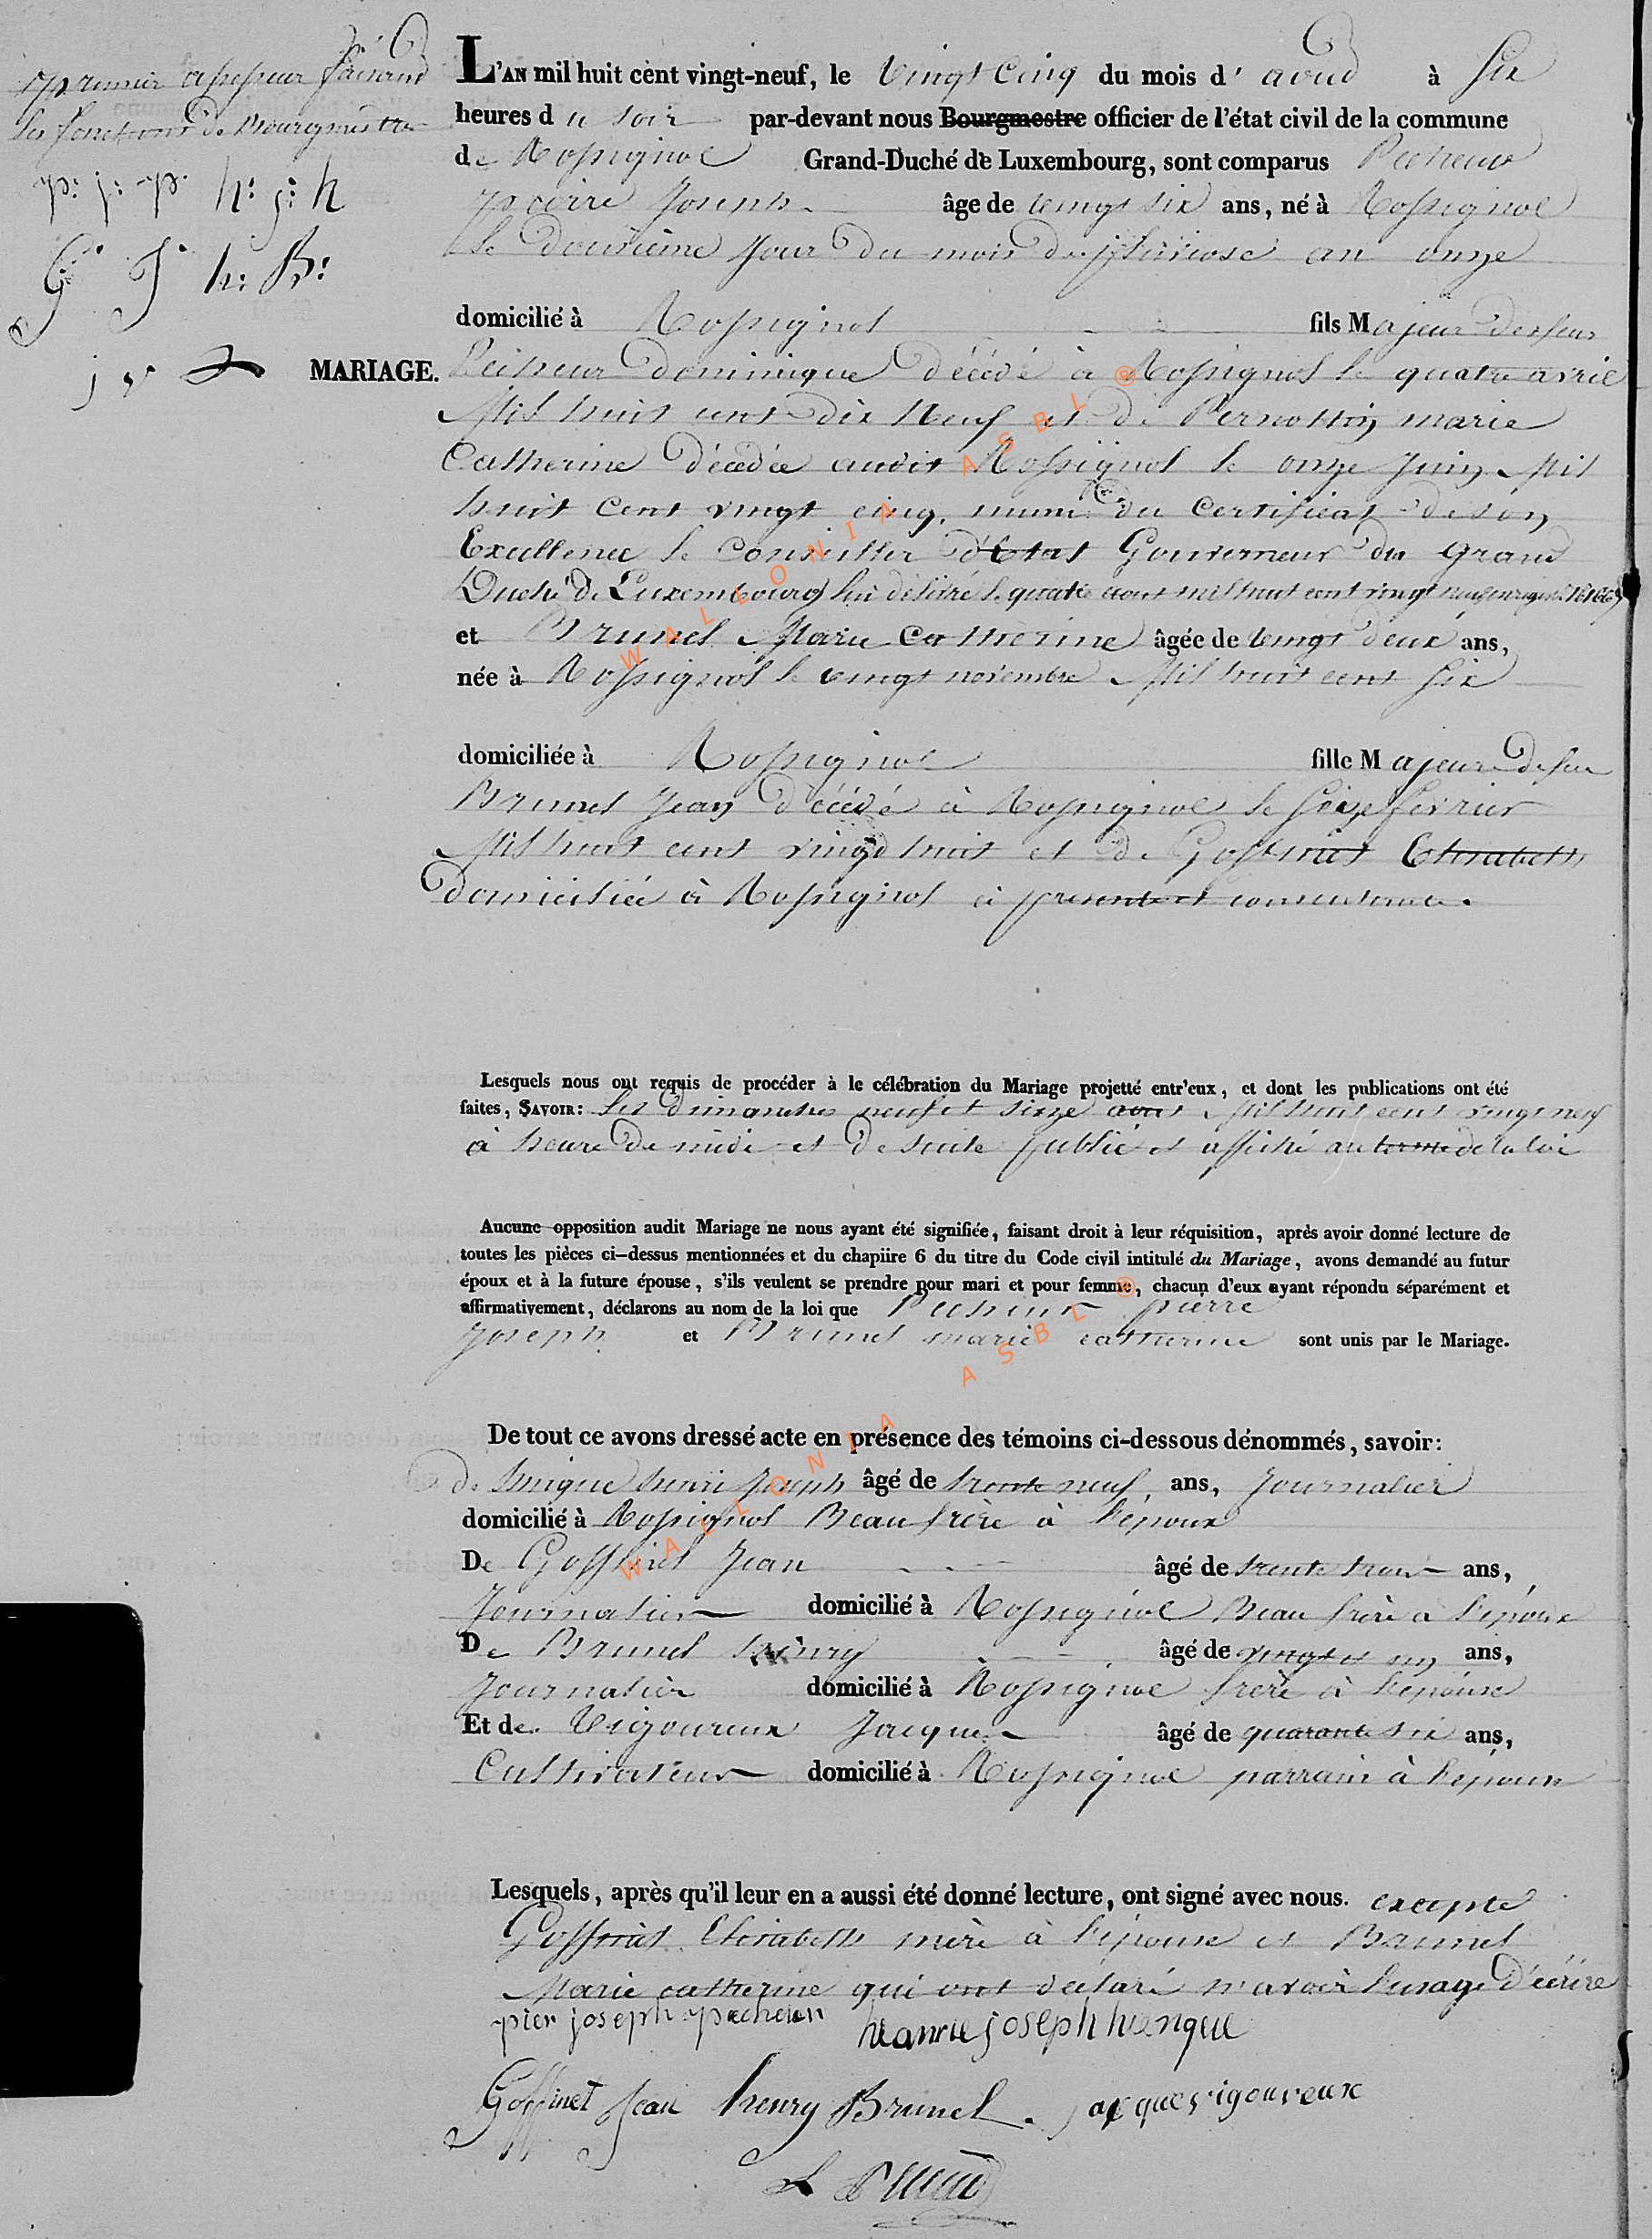 premier assesseur faisant
les fonctions de Bourgmestre
p: j: p. h: j: h
G J h: B:
j v
L'AN mil huit cent vingt-neuf, le vingt cinq du mois d' aoud à six
heures du soir par-devant nous Bourgmestre officier de l'état civil de la commune
de Rossignol Grand-Duché de Luxembourg, sont comparus Pecheur
pierre Joseph âge de vingt six ans, né à Rossignol
le douzième jour du mois de pluviose an onze
domicilié à Rossignol fils Majeur des feus
MARIAGE.
Pecheur dominique décédé à Rossignol le quatre avril
Mil huit cent dix Neuf et de Pernottin marie
Catherine décédée audit Rossignol le onze Juin Mil
huit Cent vingt cinq, muni du Certificat de son
Excellence le Conseiller d'Etat Gouverneur du grand
Duché de Luxembourg lui délivré le quatre aout mil huit cent vingt neuf
et Brunel Marie Catherine âgée de vingt deux ans,
née à Rossignol le vingt novembre Mil huit cent six
domiciliée à Rossignol fille Majeure de feu
Brunel Jean décédé à Rossignol le seize fevrier
Mil huit cent vingt huit et de Goffinet Elisabeth
domiciliée à Rossignol ci presente et consentante.
Lesquels nous ont requis de procéder à le célébration du Mariage projetté entr'eux, et dont les publications ont été
faites, SAVOIR: Les dimanches neuf et seize aout Mil huit cent vingt neuf
à heure de midi et de suite publié et affiché au terme de la loi
Aucune opposition audit Mariage ne nous ayant été signifiée, faisant droit à leur réquisition, après avoir donné lecture de
toutes les pièces ci-dessus mentionnées et du chapiire 6 du titre du Code civil intitulé du Mariage, avons demandé au futur
époux et à la future épouse, s'ils veulent se prendre pour mari et pour femme, chacun d'eux ayant répondu séparément et
affirmativement, déclarons au nom de la loi que Pecheur pierre
Joseph et Brunel marie catherine sont unis par le Mariage.
De tout ce avons dressé acte en présence des témoins ci-dessous dénommés, savoir:
de huique henri Joseph âgé de trente neuf ans, Journalier
domicilié à Rossignol Beau frère à l'époux
De Goffinet Jean âgé de trente trois ans,
Journalier domicilié à Rossignol Beau frère à l'époux
De Brunel henry âgé de vingt et un ans,
Journalier domicilié à Rossignol frère à l'épouse
Et de Vigoureux Jacques âgé de quarante six ans,
Cultivateur domicilié à Rossignol parrain à l'épouse
Lesquels, après qu'il leur en a aussi été donné lecture, ont signé avec nous. excepté
Goffinet Elisabeth mère à l'épouse et Brunel
Marie catherine qui ont declaré n'avoir l'usage d'écrire
pier joseph pecheur heanrie joseph huenque
Goffinet Jean henry Brunel. jacques vigoureux
WALLONIA ASBL ©
WALLONIA ASBL ©